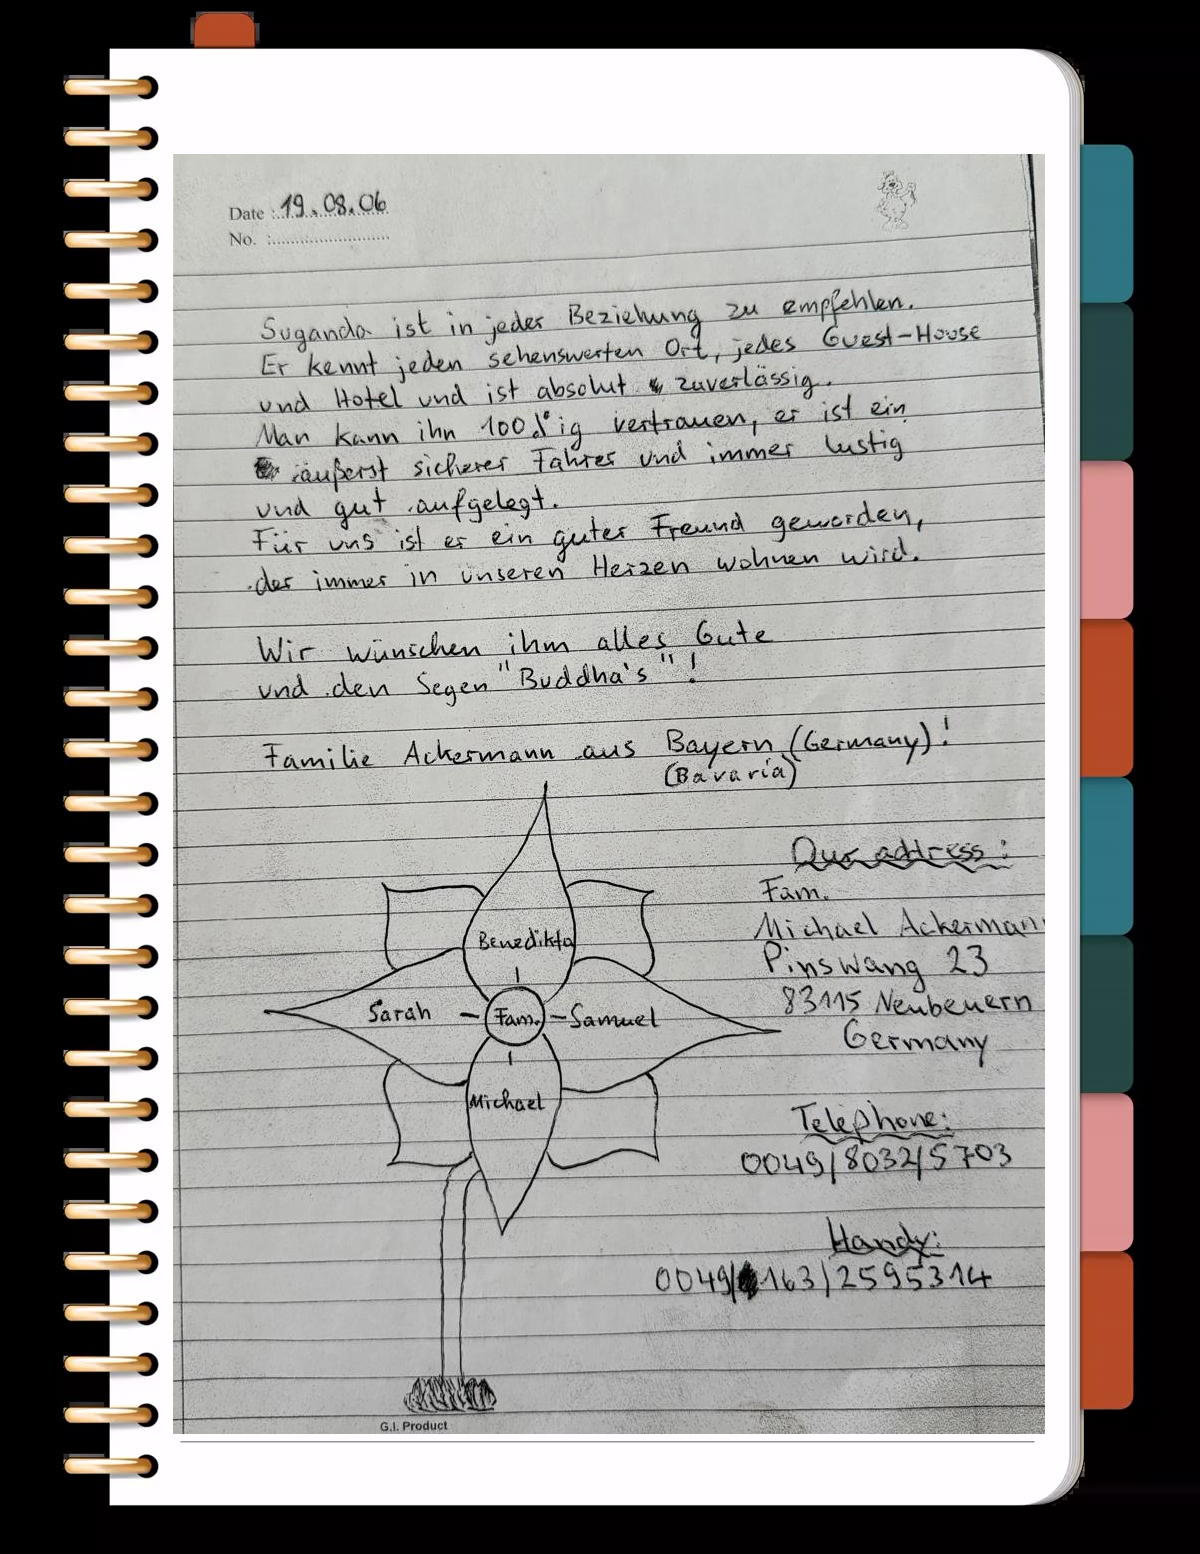 Date : 19.08.06
No. :
Suganda ist in jeder Beziehung zu empfehlen.
Er kennt jeden sehenswerten Ort, jedes Guest-House
und Hotel und ist absolut zuverlässig.
Man kann ihn 100%ig vertrauen, er ist ein
äußerst sicherer Fahrer und immer lustig
und gut aufgelegt.
Für uns ist er ein guter Freund geworden,
der immer in unseren Herzen wohnen wird.
Wir wünschen ihm alles Gute
und den Segen "Buddha's"!
Familie Ackermann aus Bayern (Germany)!
(Bavaria)
Our address:
Fam.
Michael Ackermann
Pinswang 23
83115 Neubeuern
Germany
Benedikta
Sarah - Fam. - Samuel
Michael
Telephone:
0049/8032/5703
Handy:
0049/163/2595314
G.I. Product